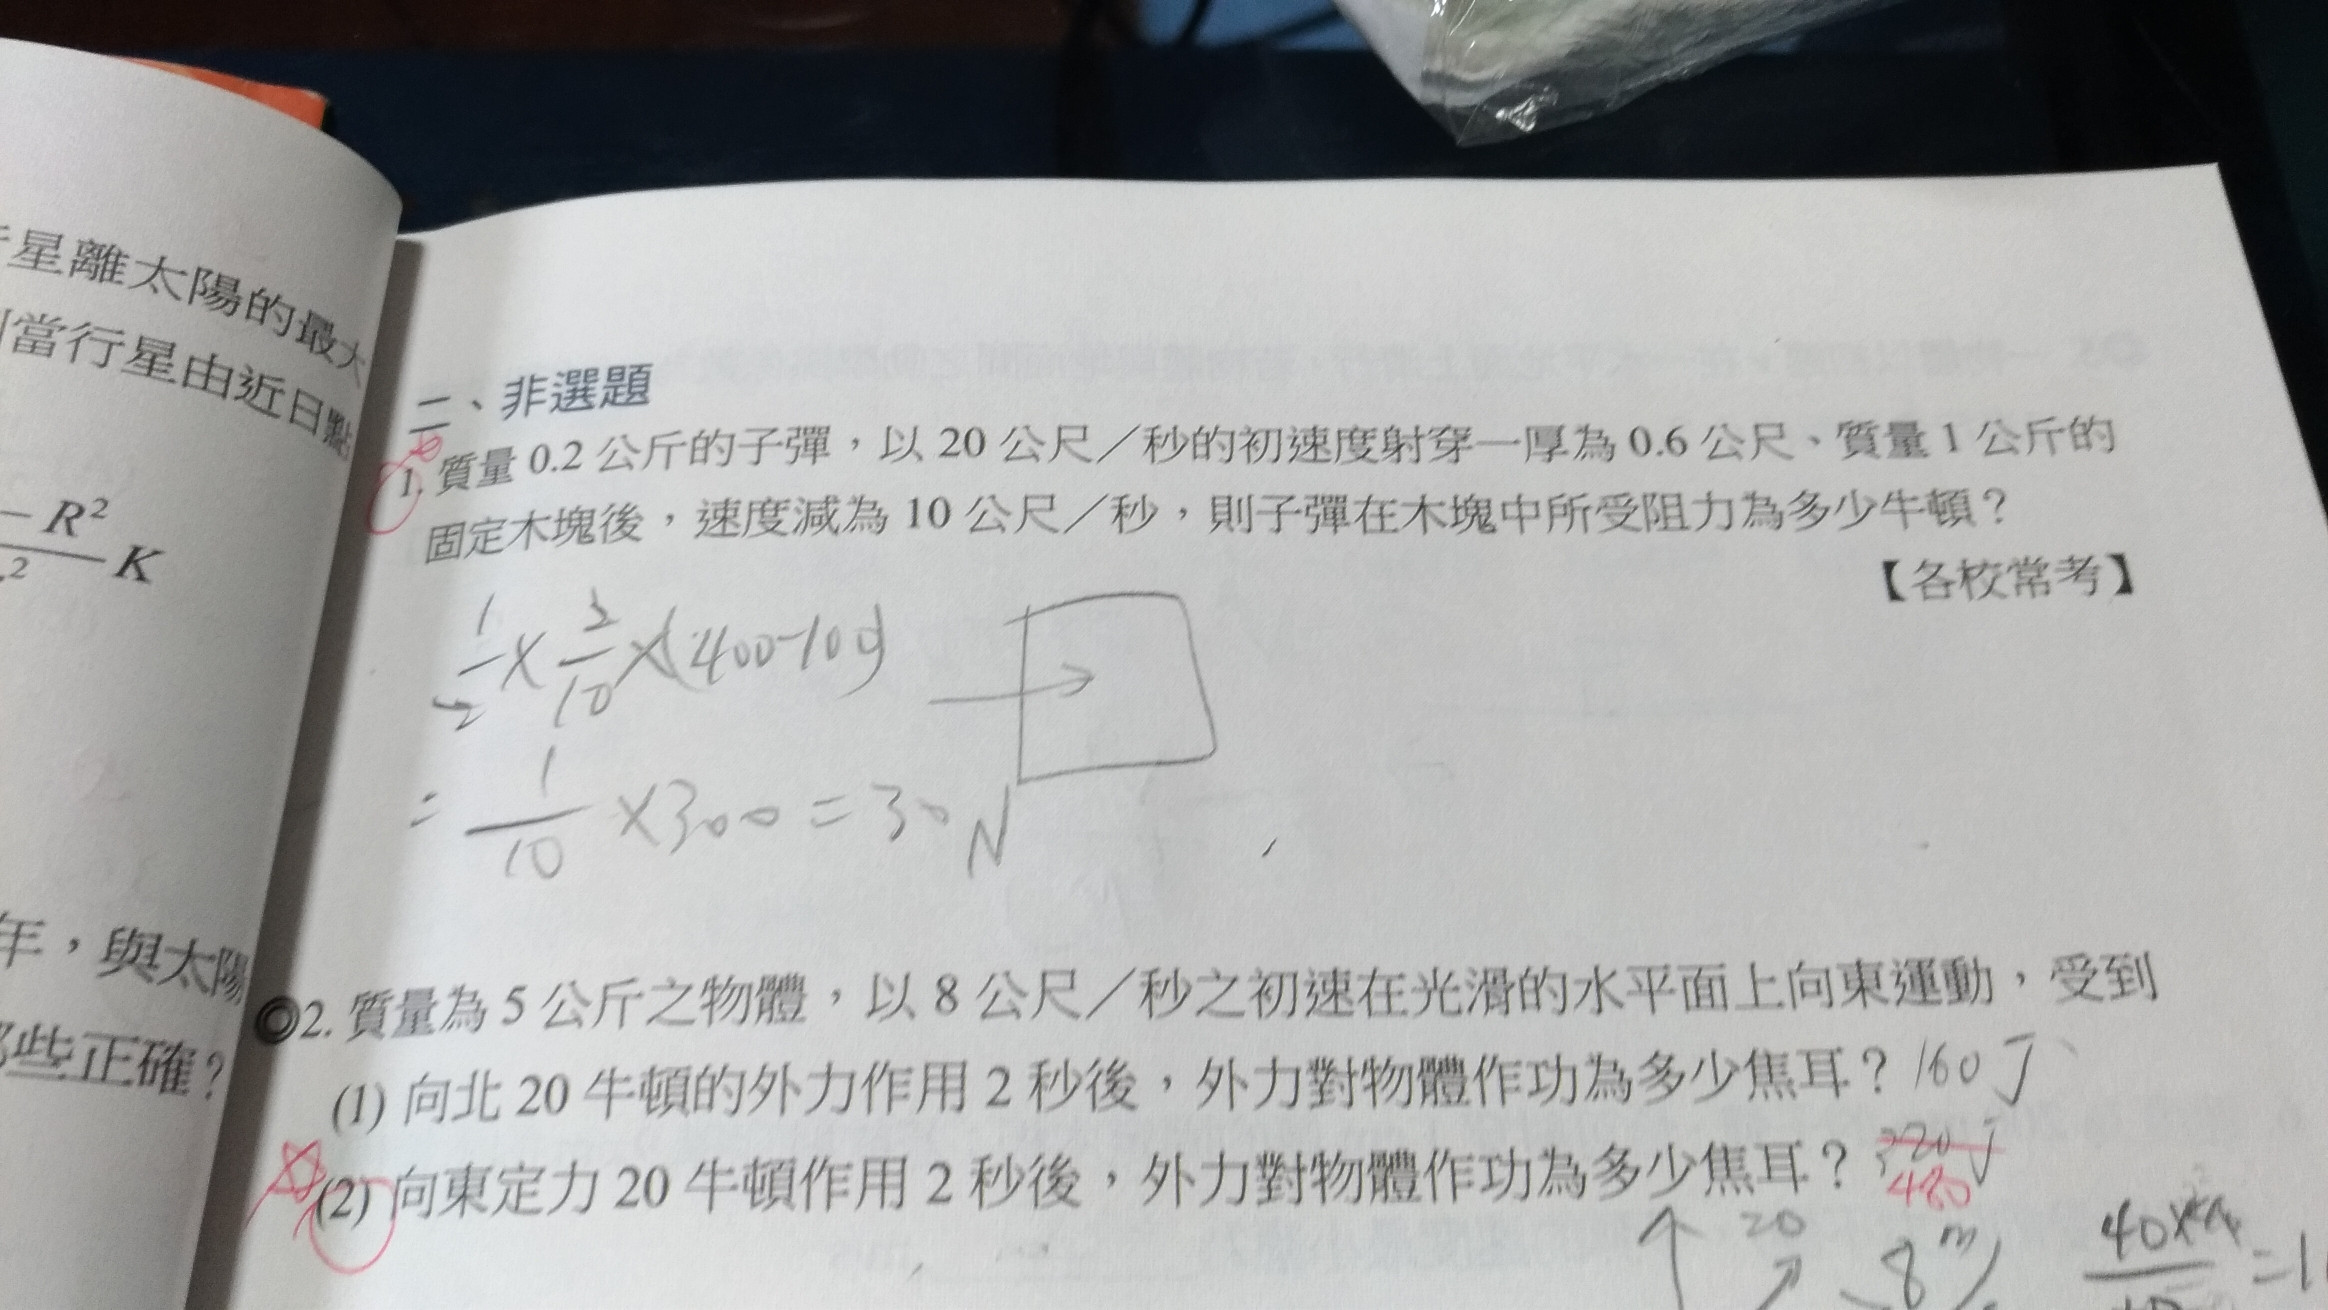 星離太陽的最大
當行星由近日點
− R²
K
年，與太陽
些正確？
二、非選題
1. 質量 0.2 公斤的子彈，以 20 公尺／秒的初速度射穿一厚為 0.6 公尺、質量 1 公斤的
固定木塊後，速度減為 10 公尺／秒，則子彈在木塊中所受阻力為多少牛頓？
【各校常考】
1/2 × 2/10 × (400-100)
= 1/10 × 300 = 30 N
◎2. 質量為 5 公斤之物體，以 8 公尺／秒之初速在光滑的水平面上向東運動，受到
(1) 向北 20 牛頓的外力作用 2 秒後，外力對物體作功為多少焦耳？160 J
(2) 向東定力 20 牛頓作用 2 秒後，外力對物體作功為多少焦耳？320 J
480
20
8 m/